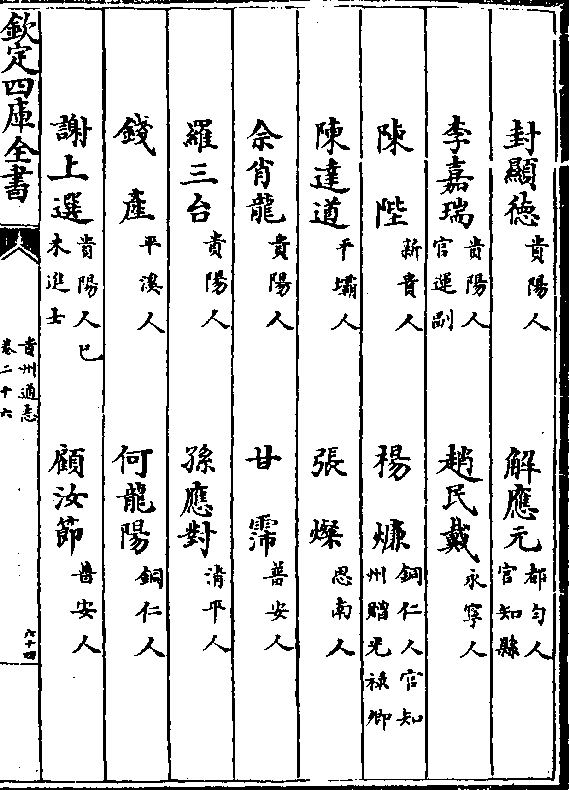 封顯德貴陽人 解應元都匀人官知縣
李嘉瑞貴陽人官運副 趙民戴永寧人
陳陛新貴人 楊㷰銅仁人官知州贈光祿卿
陳達道平壩人 張燦思南人
佘肖龍貴陽人 甘霈普安人
羅三台貴陽人 孫應對清平人
錢產平溪人 何龍陽銅仁人
謝上選貴陽人巳未進士 顧汝節普安人
欽定四庫全書
貴州通志
卷二十六
六十四